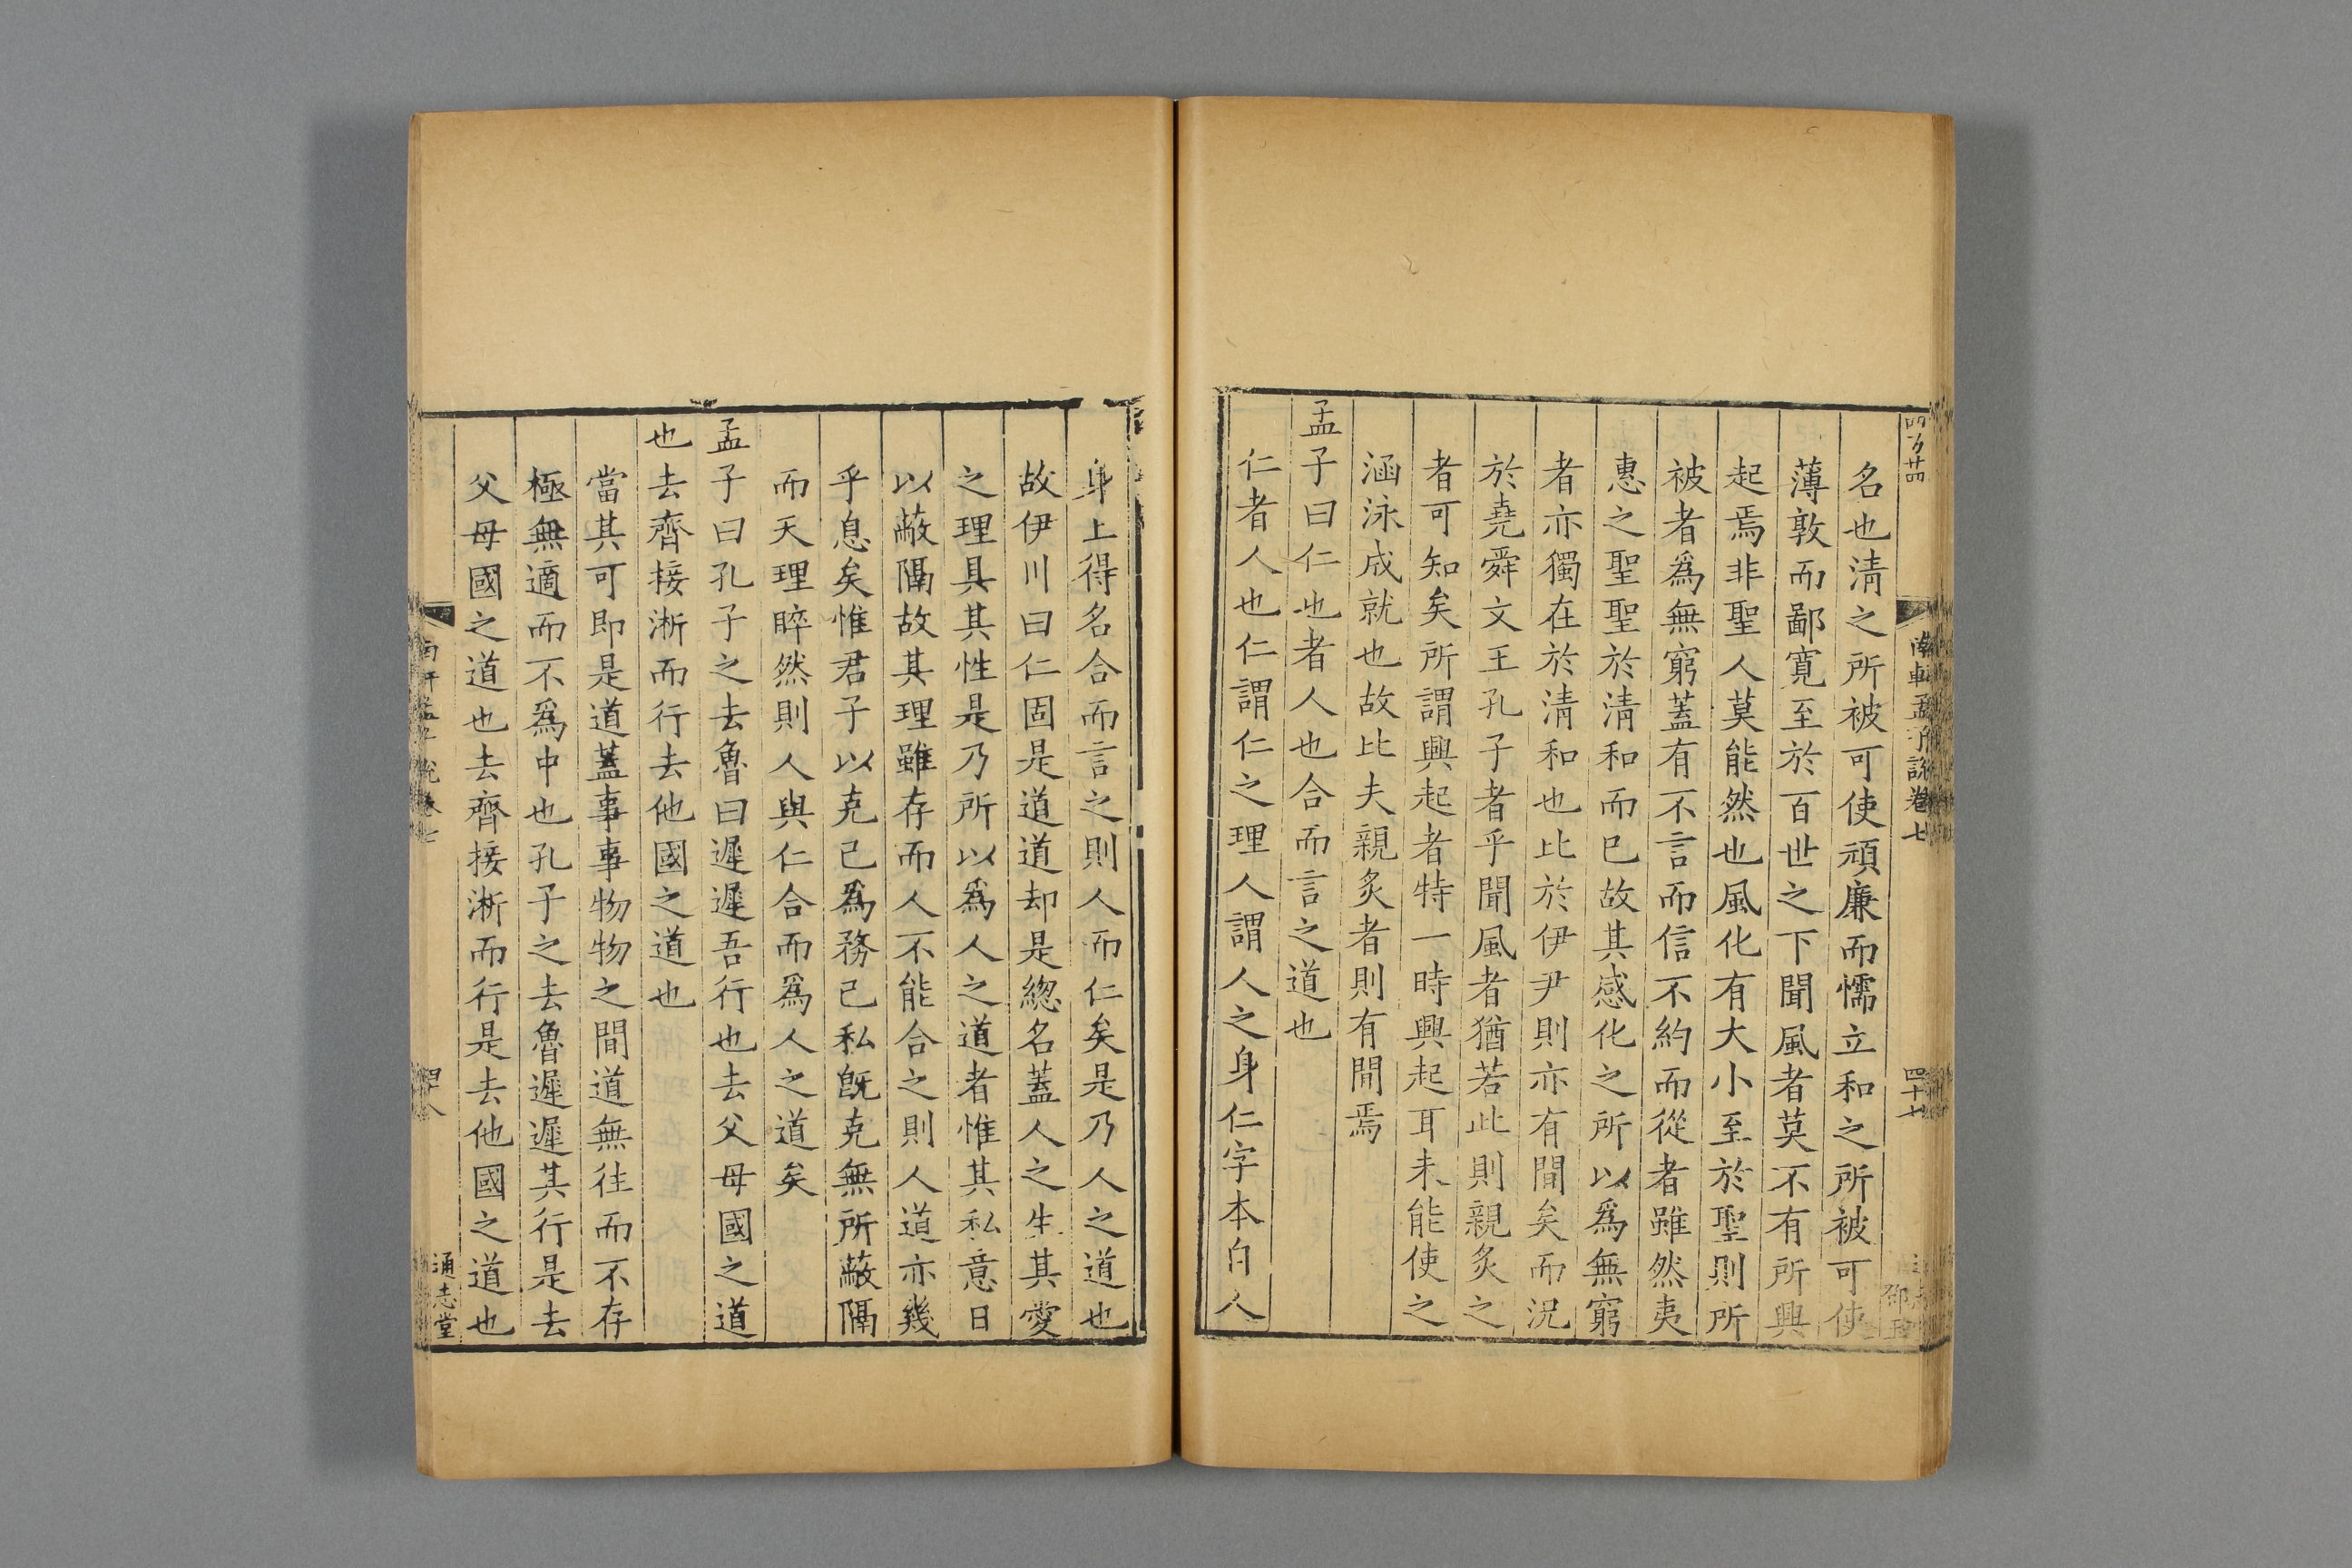 南軒孟子說卷七
四十七
名也清之所被可使頑廉而懦立和之所被可使
薄敦而鄙寛至於百世之下聞風者莫不有所興
起焉非聖人莫能然也風化有大小至於聖則所
被者爲無窮蓋有不言而信不約而從者雖然夷
惠之聖聖於清和而已故其感化之所以爲無窮
者亦獨在於清和也比於伊尹則亦有間矣而況
於堯舜文王孔子者乎聞風者猶若此則親炙之
者可知矣所謂興起者特一時興起耳未能使之
涵泳成就也故比夫親炙者則有間焉
孟子曰仁也者人也合而言之道也
仁者人也仁謂仁之理人謂人之身仁字本自人
身上得名合而言之則人而仁矣是乃人之道也
故伊川曰仁固是道道却是緫名蓋人之生其愛
之理具其性是乃所以爲人之道者惟其私意日
以蔽隔故其理雖存而人不能合之則人道亦幾
乎息矣惟君子以克己爲務己私旣克無所蔽隔
而天理睟然則人與仁合而爲人之道矣
孟子曰孔子之去魯曰遲遲吾行也去父母國之道
也去齊接淅而行去他國之道也
當其可即是道蓋事事物物之間道無往而不存
極無適而不爲中也孔子之去魯遲遲其行是去
父母國之道也去齊接淅而行是去他國之道也
通志堂